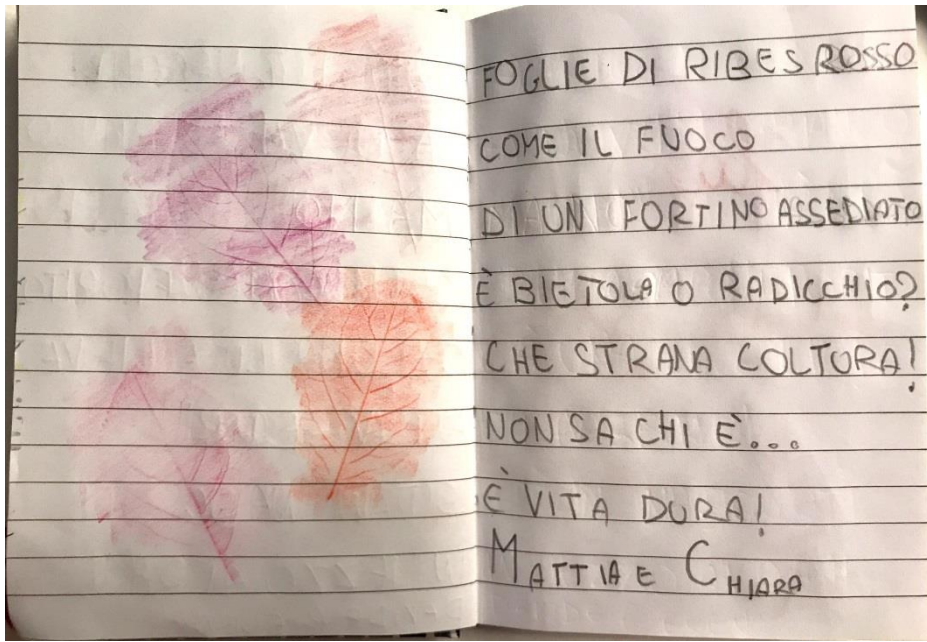 FOGLIE DI RIBES ROSSO
COME IL FUOCO
DI UN FORTINO ASSEDIATO
È BIETOLA O RADICCHIO?
CHE STRANA COLTURA!
NON SA CHI È...
È VITA DURA!
MATTIA E CHIARA